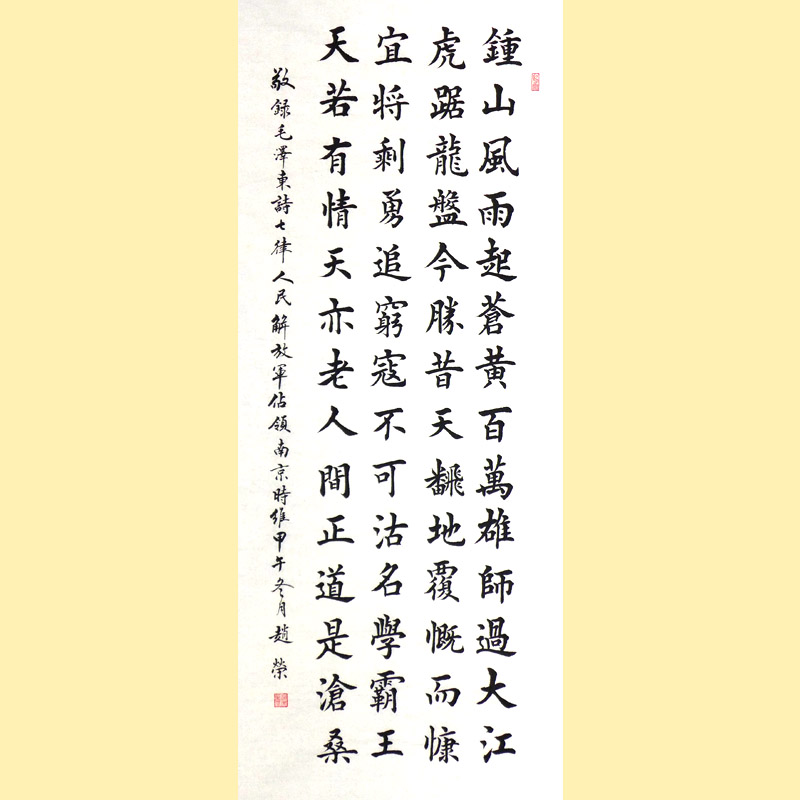 鍾山風雨起蒼黄百萬雄師過大江
虎踞龍盤今勝昔天飜地覆慨而慷
宜将剩勇追窮寇不可沽名學霸王
天若有情天亦老人間正道是滄桑
敬録毛澤東詩七律人民解放軍佔領南京時維甲午冬月趙榮